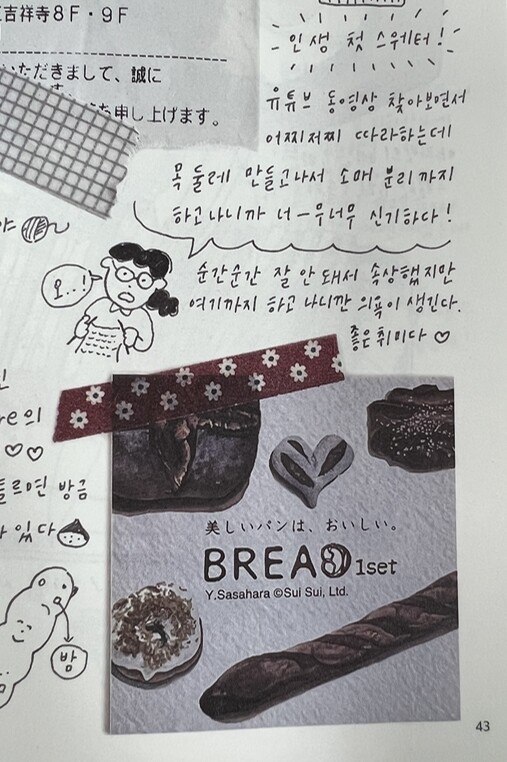 吉祥寺8F・9F
ただきまして、誠に
申し上げます。
인생 첫 스웨터!
유튜브 동영상 찾아보면서
어찌저찌 따라하는데
목 둘레 만들고나서 소매 분리까지
하고나니까 너ー무너무 신기하다!
순간순간 잘 안돼서 속상했지만
여기까지 하고 나니깐 의욕이 생긴다.
좋은 취미다 ♡
오..!
야
re의
♡♡
들르면 방금
있다
밤
美しいパンは、おいしい。
BREAD 1set
Y.Sasahara ©Sui Sui, Ltd.
43